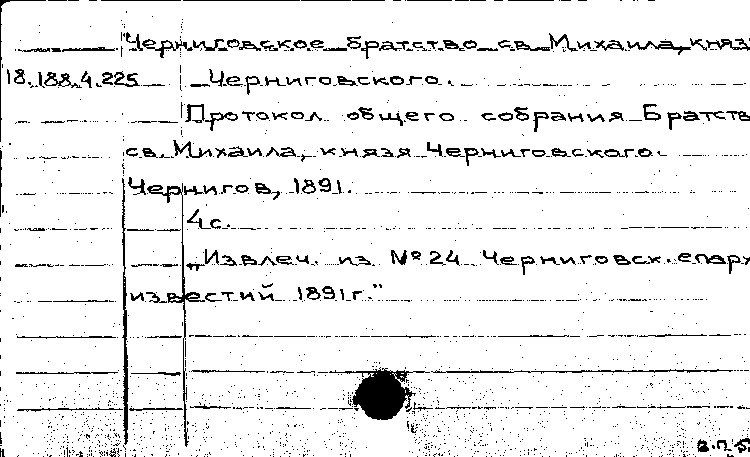 Черниговское братство св. Михаила, княз
18.188.4.225 Черниговского.
Протокол общего собрания Братств
св. Михаила, князя Черниговского.
Чернигов, 1891.
4с.
„Извлеч. из №24 Черниговск. епарх
известий 1891г."